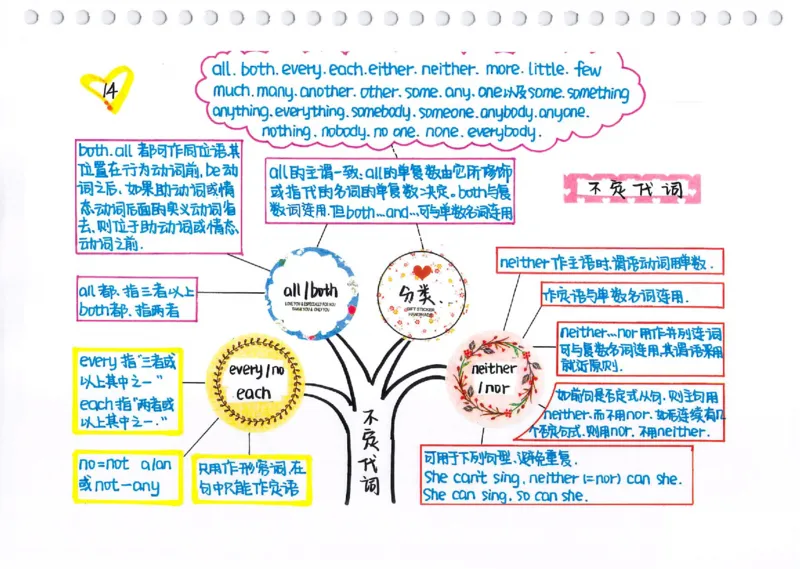 14
all. both. every. each. either. neither. more. little. few
much. many. another. other. some. any. one以及some. something
anything. everything. somebody. someone. anybody. anyone.
nothing. nobody. no one. none. everybody.
不定代词
both. all 都可作同位语,其
位置在行为动词前, be动
词之后, 如果助动词或情
态动词后面的实义动词省
去, 则位于助动词或情态
动词之前.
all的主谓一致: all的单复数由它所修饰
或指代的名词的单复数决定. both与复
数词连用. 但both...and...可与单数名词连用
all都. 指三者以上
both都. 指两者
all/both
LOVE YOU & ESPECIALLY FOR YOU
THANK YOU & ONLY YOU
分类.
neither作主语时, 谓语动词用单数.
作定语与单数名词连用.
neither...nor用作并列连词
可与复数名词连用, 其谓语采用
就近原则.
every指"三者或
以上其中之一"
each指"两者或
以上其中之一."
every/no
each
neither
/nor
如前句是否定式从句, 则主句用
neither. 而不用nor. 如后连续有几
个否定句式, 则用nor. 不用neither.
no=not a/an
或not-any
只用作形容词, 在
句中只能作定语
不定代词
可用于下列句型, 避免重复.
She can't sing, neither (=nor) can she.
She can sing, so can she.